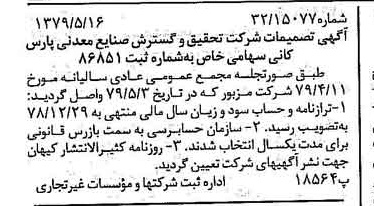 شماره۳۲/۱۵۰۷۷ ۱۳۷۹/۵/۱۶
آگهی تصمیمات شرکت تحقیق و گسترش صنایع معدنی پارس
کانی سهامی خاص به‌شماره ثبت ۸۶۸۵۱
طبق صورتجلسه مجمع عمومی عادی سالیانه مورخ
۷۹/۴/۱۱ شرکت مزبور که در تاریخ ۷۹/۵/۳ واصل گردید:
۱-ترازنامه و حساب سود و زیان سال مالی منتهی به ۷۸/۱۲/۲۹
به‌تصویب رسید. ۲- سازمان حسابرسی به سمت بازرس قانونی
برای مدت یکسال انتخاب شدند. ۳- روزنامه کثیرالانتشار کیهان
جهت نشر آگهیهای شرکت تعیین گردید.
پ۱۸۵۶۴ اداره ثبت شرکتها و مؤسسات غیرتجاری